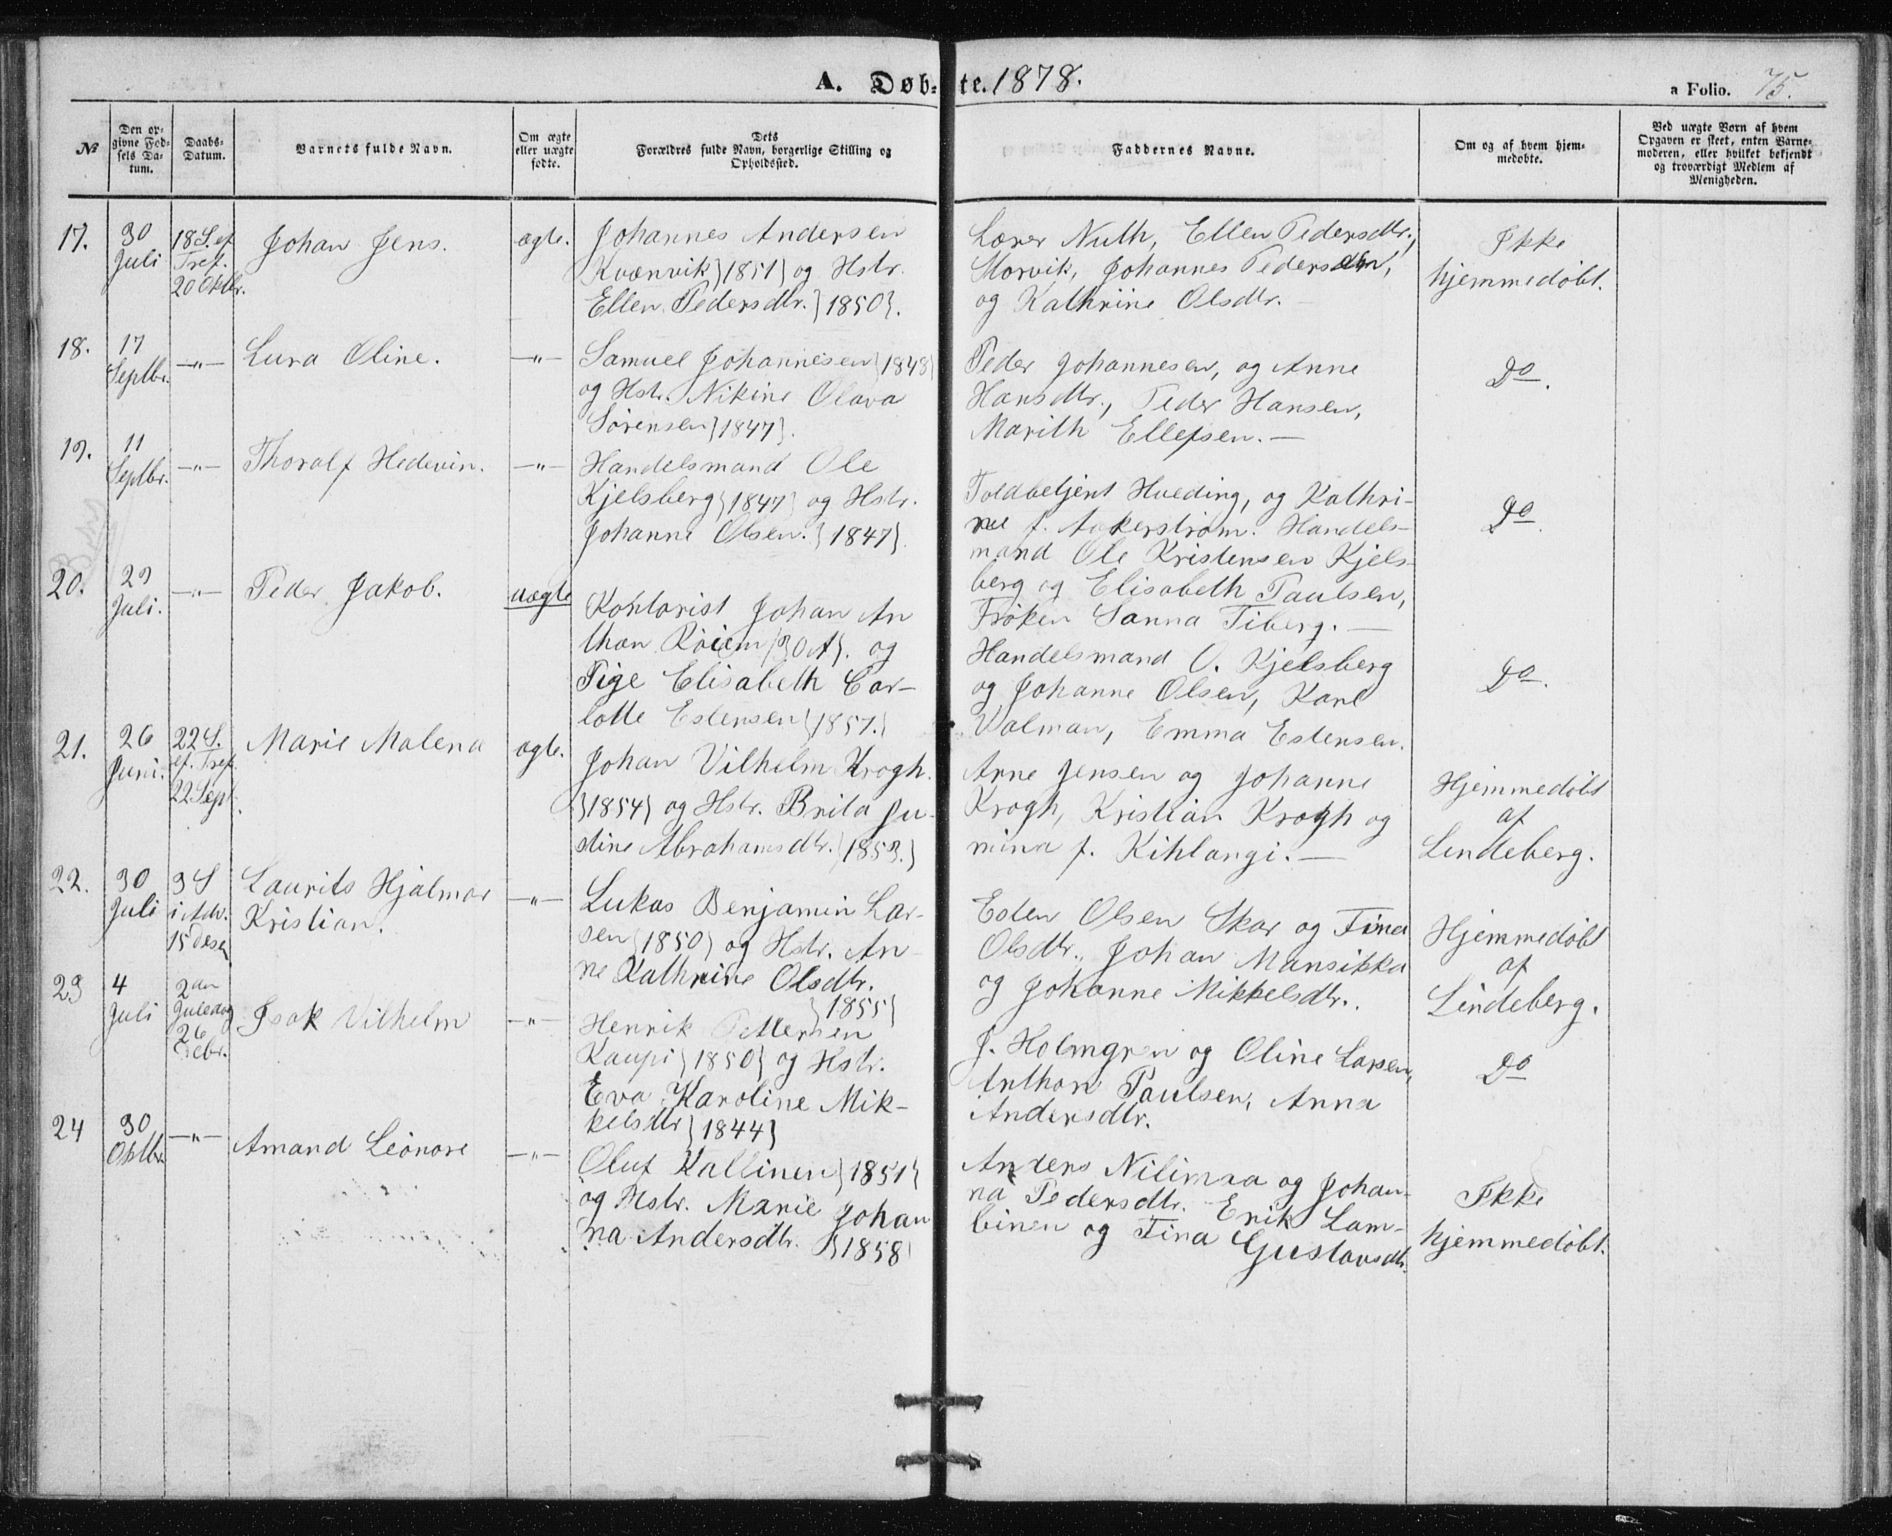 A. Døb- te. 1878. a Folio. 75.
№
Den op-
givne Fød-
sels Da-
tum.
Daabs-
Datum.
Barnets fulde Navn.
Om ægte
eller uægte
fødte.
Dets
Forældres fulde Navn, borgerlige Stilling og
Opholdssted.
Faddernes Navne.
Om og af hvem hjem-
medøbte.
Ved uægte Børn af hvem
Opgaven er skeet, enten Barne-
moderen, eller hvilket bekjendt
og troværdigt Medlem af
Menigheden.
17.
30
Juli
18 S. ef
Tref.
20 Oktbr.
Johan Jens.
ægte.
Johannes Andersen
Kvænvik}1851} og Hstr.
Ellen Pedersdtr.}1850}.
Lærer Nuth, Ellen Pedersdtr.,
Storvik, Johannes Pedersen,
og Kathrine Olsdtr. —
Ikke
hjemmedøbt.
18.
17
Septbr.
—"—
Lura Oline.
—"—
Samuel Johannesen}1848}
og Hstr. Nikine Olava
Sørensen}1847}.
Peder Johannesen, og Anne
Hansdtr., Peder Hansen,
Marith Ellefsen. —
Do.
19.
11
Septbr.
—"—
Thoralf Hedevin.
—"—
Handelsmand Ole
Kjelsberg}1847} og Hstr.
Johanne Olsen.}1847}.
Toldbetjent Hveding, og Kathri-
ne f. Aakerstrøm. Handels-
mand Ole Kristensen Kjels-
berg og Elisabeth Paulsen,
Frøken Sanna Fiberg. —
Do.
20.
29
Juli.
—"—
Peder Jakob.
uægte
Kontorist Johan An
thon Røiem}30 A}. og
Pige Elisabeth Car-
lotte Estensen}1857.}
Handelsmand O. Kjelsberg
og Johanne Olsen, Karl
Valman, Emma Estensen.
Do.
21.
26
Juni.
22 S.
ef. Tref.
22 Sept.
Marie Malena
ægte.
Johan Vilhelm Krogh.
}1854} og Hstr. Brita Ju-
stine Abrahamsdtr.}1853.}
Arne Jensen og Johanne
Krogh, Kristian Krogh og
mina f. Kihlangi. —
Hjemmedøbt
af
Lindeberg.
22.
30
Juli
3 S
i Adv.
15 Desbr
Laurits Hjalmar
Kristian.
—"—
Lukas Benjamin Lar-
sen}1850} og Hstr. An-
ne Kathrine Olsdtr.
}1855}
Esten Olsen Skar og Fina
Olsdtr., Johan Mansikka
og Johanne Mikkelsdtr..
Hjemmedøbt
af
Lindeberg.
23
4
Juli
2den
Juledag
26
Debr.
Isak Vilhelm
—"—
Henrik Pettersen
Kaupi}1850} og Hstr.
Eva Karoline Mik-
kelsdtr}1844}
J. Holmgren og Oline Larsen,
Anthon Paulsen, Anna
Andersdtr.
Do
24
30
Oktbr.
—"—
Amand Leonore
—"—
Oluf Kallinen}1851}
og Hstr. Marie Johan
na Andersdtr. }1858
Anders Nilimaa og Johan-
na Pedersdtr. Erik Lam-
binen og Fina Gustavsdtr.
Ikke
hjemmedøbt.